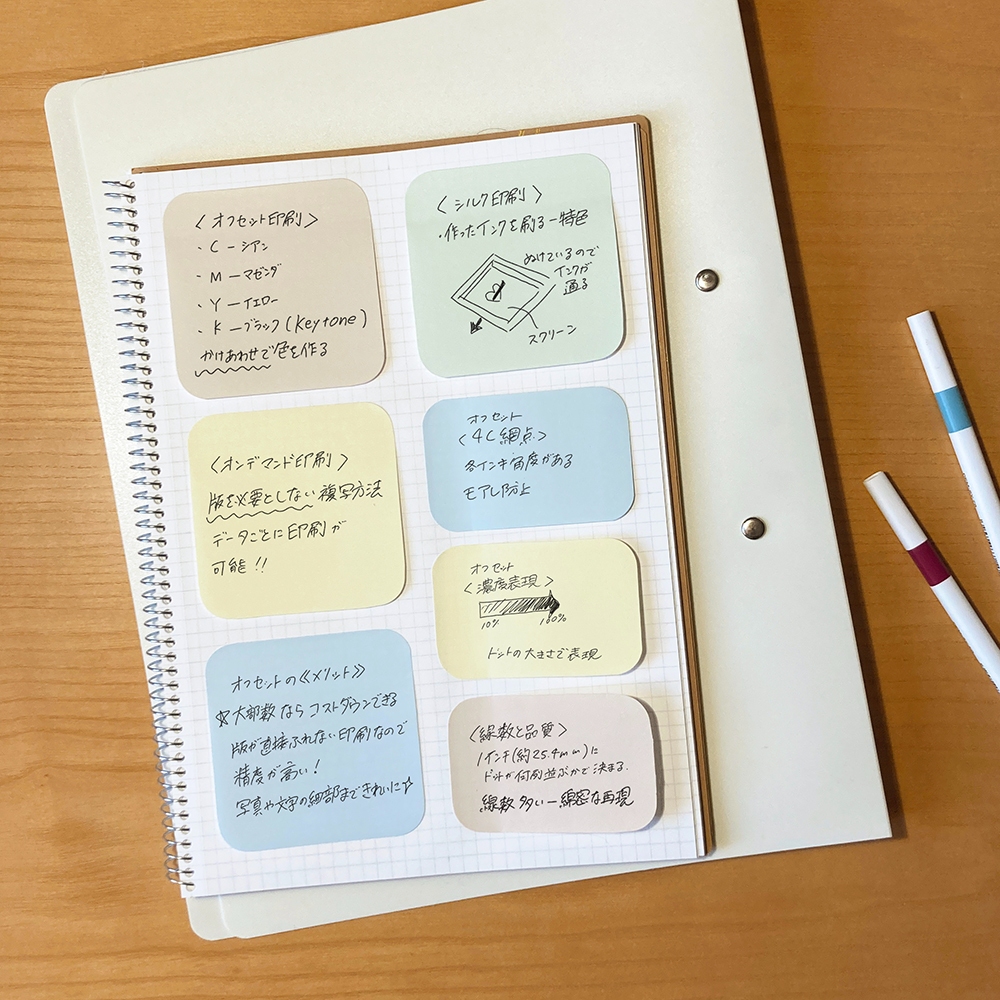 〈オフセット印刷〉
・C－シアン
・M－マゼンダ
・Y－イエロー
・K－ブラック(Keytone)
かけあわせで色を作る
〈オンデマンド印刷〉
版を必要としない複写方法
データごとに印刷が
可能!!
オフセットの《メリット》
☆大部数ならコストダウンできる
版が直接ふれない印刷なので
精度が高い!
写真や文字の細部まできれいに☆
〈シルク印刷〉
・作ったインクを刷る－特色
ぬけているので
インクが
通る
スクリーン
オフセット
〈4C網点〉
各インキ角度がある
モアレ防止
オフセット
〈濃度表現〉
10% 100%
ドットの大きさで表現
〈線数と品質〉
1インチ(約25.4mm)に
ドットが何列並ぶかで決まる.
線数多い－綿密な再現